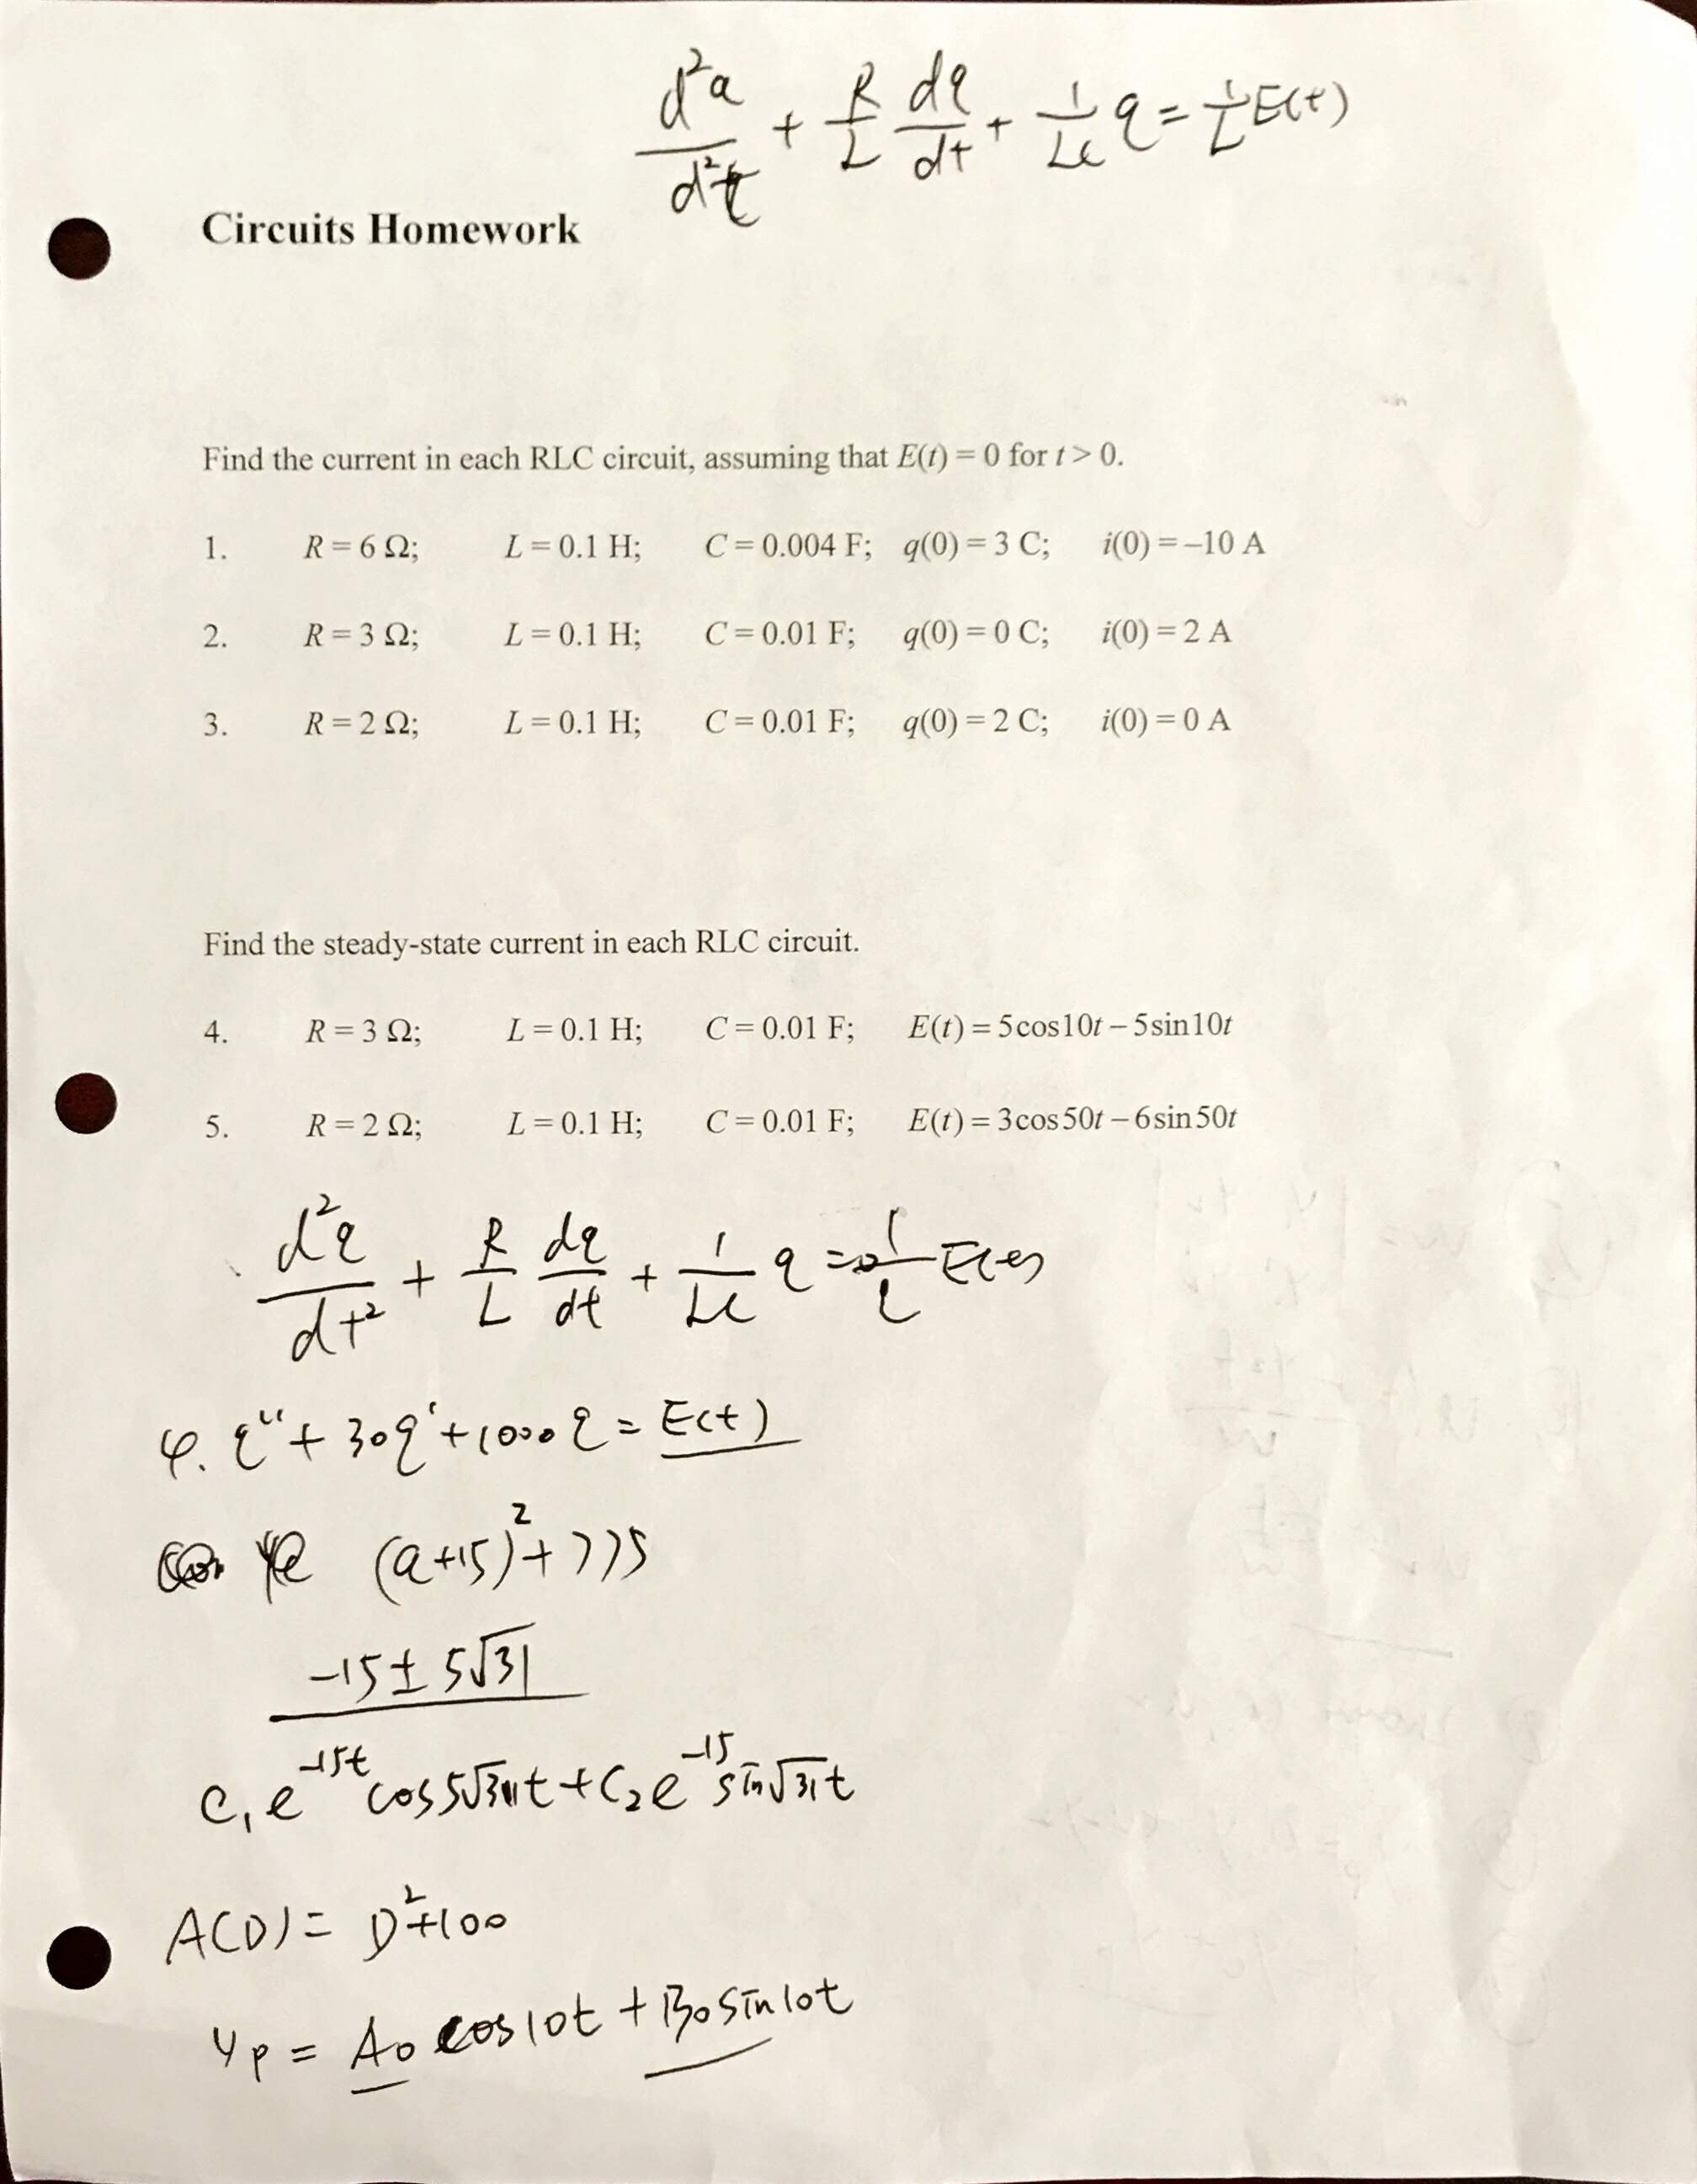 d²q/d²t + R/L dq/dt + 1/LC q = 1/L E(t)
Circuits Homework
Find the current in each RLC circuit, assuming that E(t) = 0 for t > 0.
1. R = 6 Ω; L = 0.1 H; C = 0.004 F; q(0) = 3 C; i(0) = –10 A
2. R = 3 Ω; L = 0.1 H; C = 0.01 F; q(0) = 0 C; i(0) = 2 A
3. R = 2 Ω; L = 0.1 H; C = 0.01 F; q(0) = 2 C; i(0) = 0 A
Find the steady-state current in each RLC circuit.
4. R = 3 Ω; L = 0.1 H; C = 0.01 F; E(t) = 5cos10t – 5sin10t
5. R = 2 Ω; L = 0.1 H; C = 0.01 F; E(t) = 3cos50t – 6sin50t
d²q/dt² + R/L dq/dt + 1/LC q = 1/L E(t)
4. q'' + 30q' + 1000q = E(t)
(a+15)² + 775
-15 ± 5√31
C₁e^-15t cos5√31t + C₂e^-15 sin√31t
A(D) = D²+100
yp = A₀ cos10t + B₀ sin10t